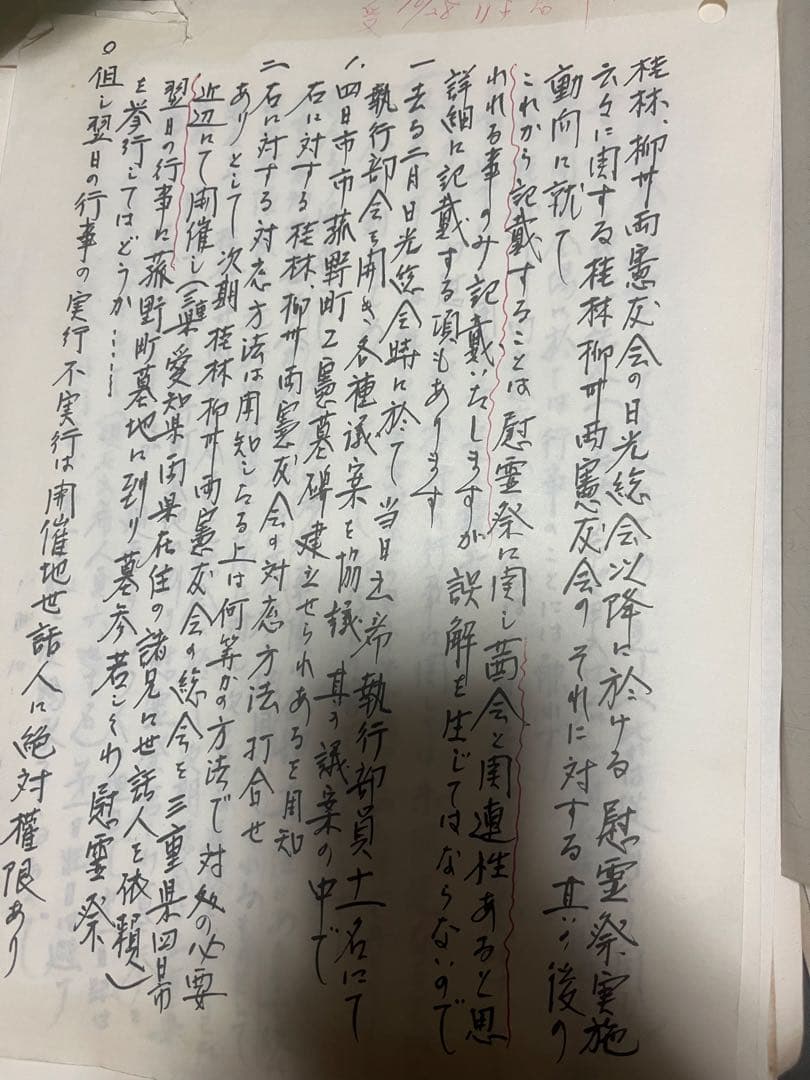 桂林、柳州両憲友会の日光総会以降に於ける慰霊祭実施
云々に関する桂林柳州両憲友会のそれに対する其の後の
動向に就て
これから記載することは慰霊祭に関し茜会と関連性あると思
われる事のみ記載いたしますが誤解を生じてはならないので
詳細に記載する項もあります
一去る二月日光総会時に於て当日出席執行部員十一名にて
執行部会を開き各種議案を協議其の議案の中で
1.四日市市菰野町に憲墓碑建立せられあるを周知
右に対する桂林、柳州両憲友会の対応方法打合せ
二右に対する対応方法は周知したる上は何等かの方法で対処の必要
ありとして次期桂林柳州両憲友会の総会を三重県四日市
近辺にて開催し(三重県愛知県両県在住の諸兄に世話人を依頼)
翌日の行事に菰野町墓地に到り墓参若しくわ慰霊祭
を挙行してはどうか……
○但し翌日の行事の実行不実行は開催地世話人に絶対権限あり